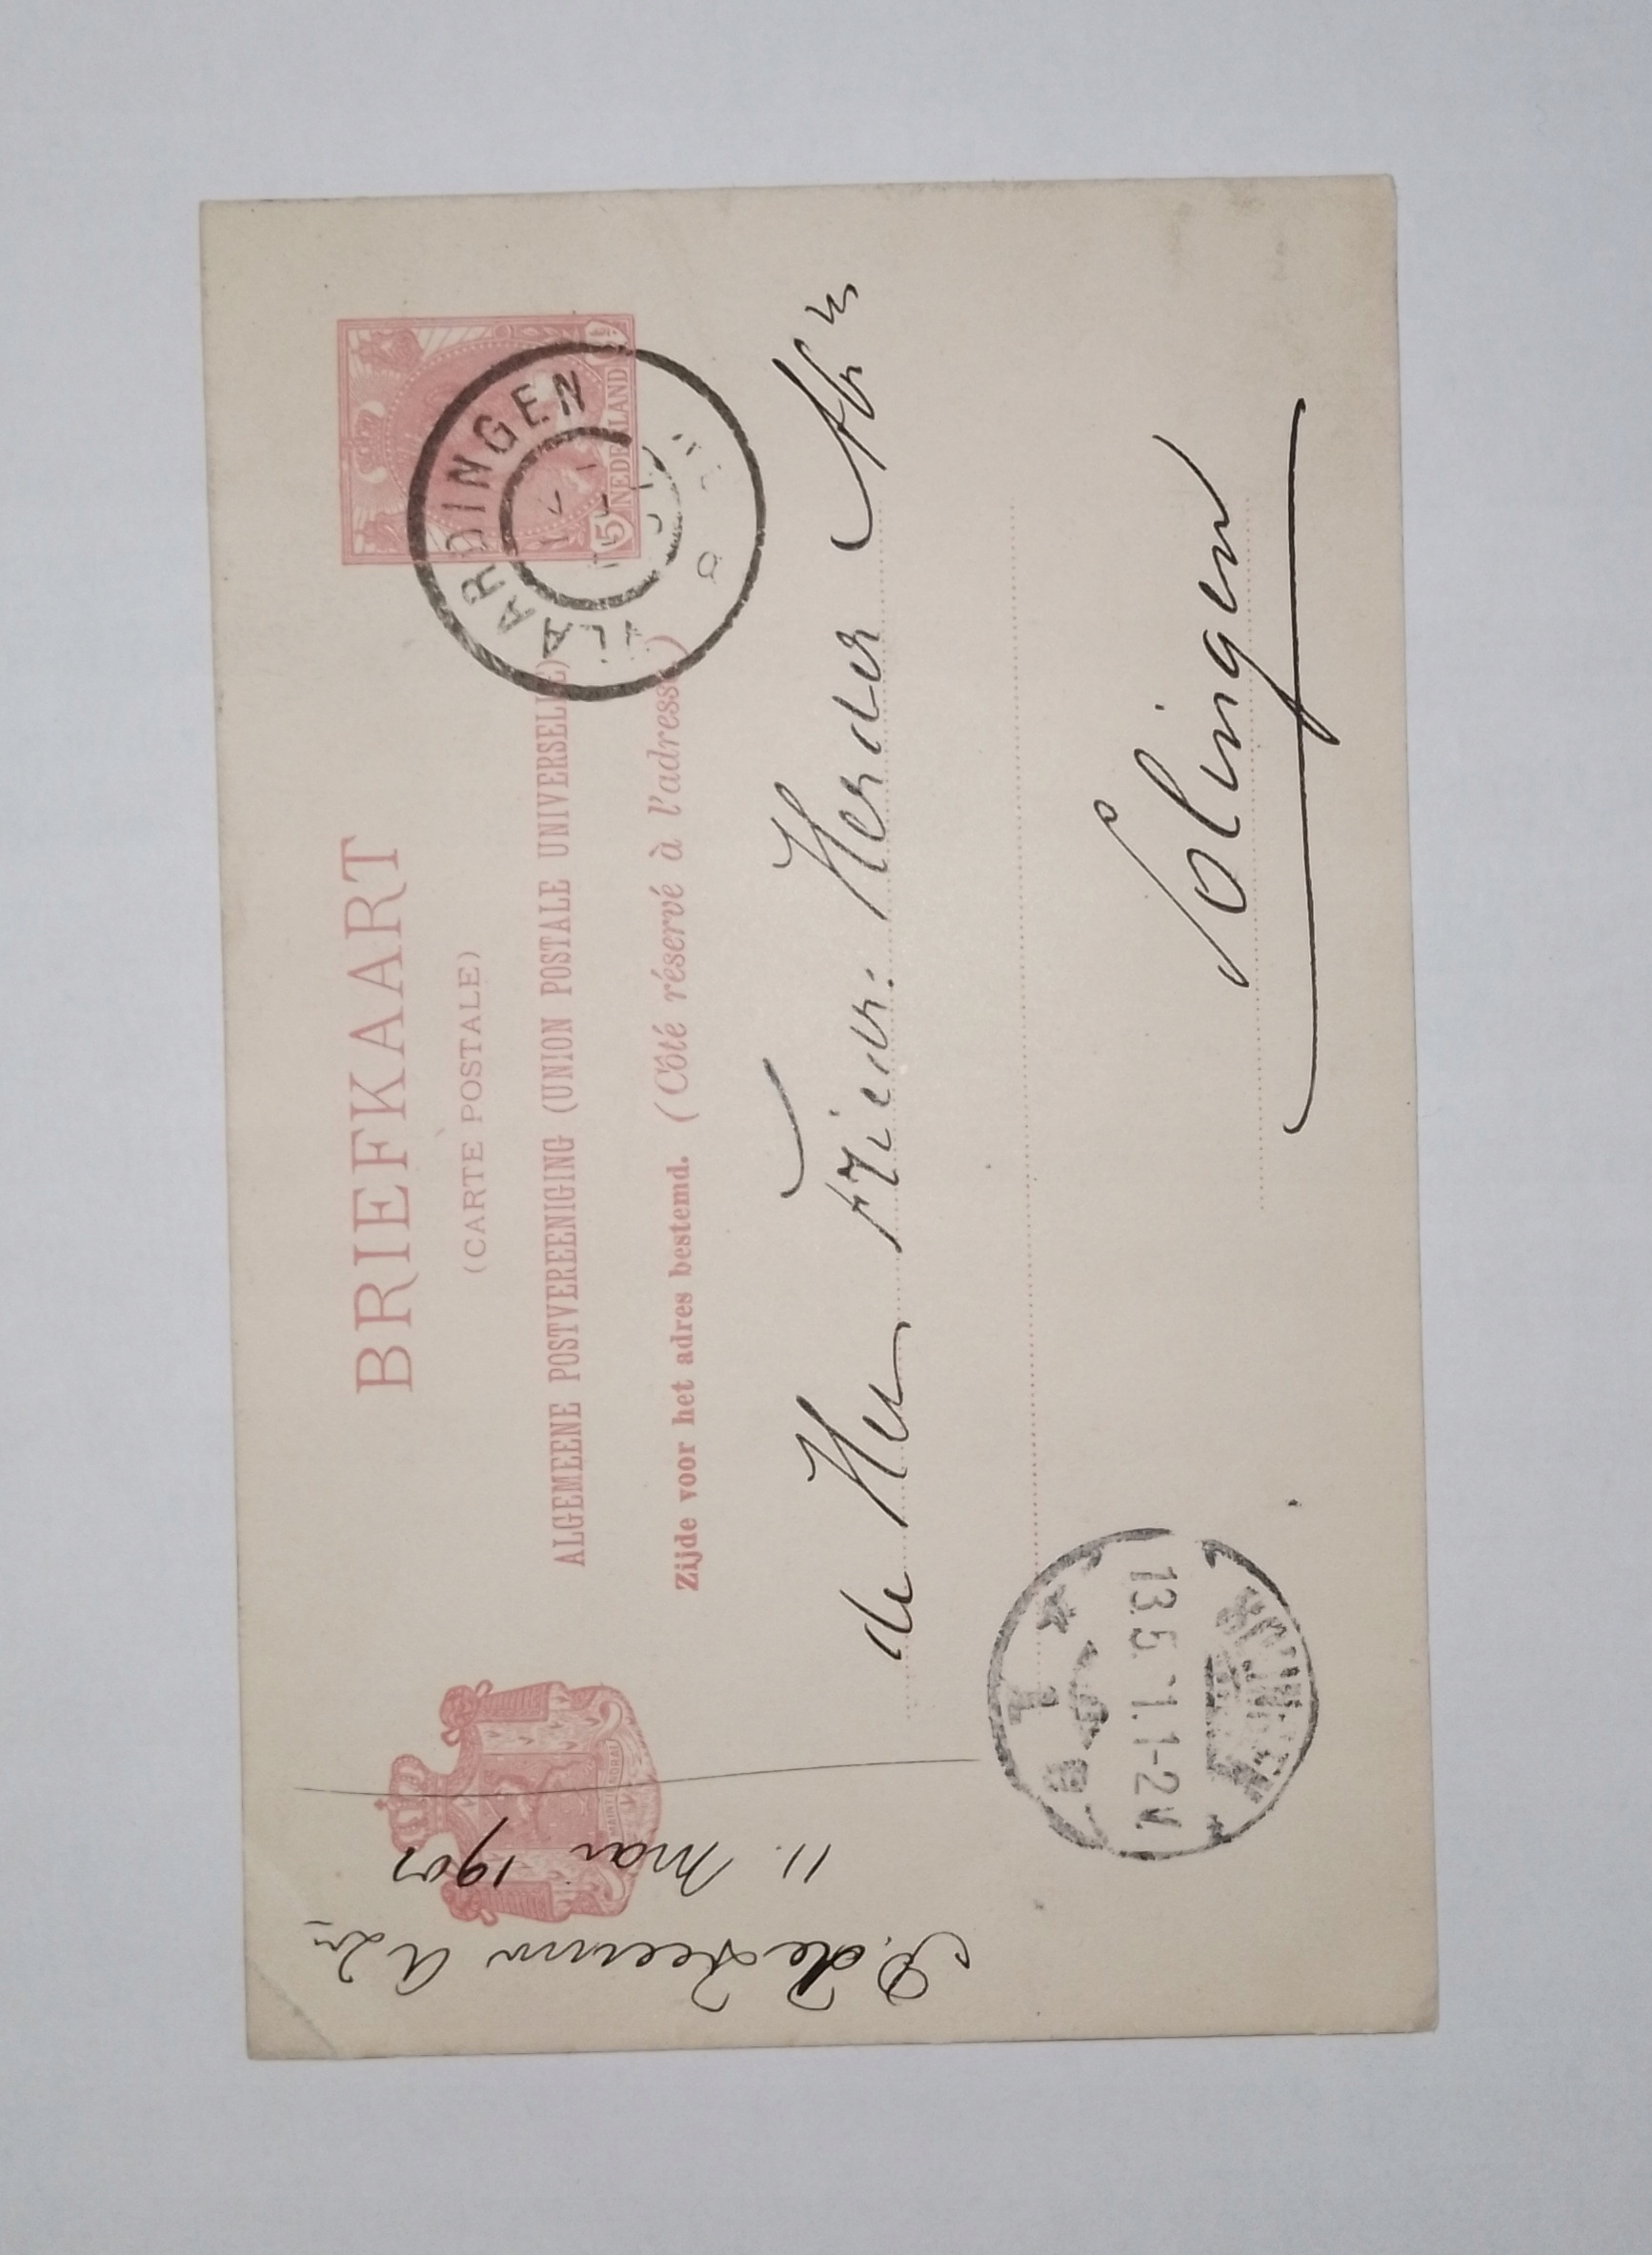 BRIEFKAART
(CARTE POSTALE)
ALGEMEENE POSTVEREENIGING (UNION POSTALE UNIVERSELLE)
Zijde voor het adres bestemd. (Côté réservé à l'adresse)
5 NEDERLAND
VLAARDINGEN
de Heer Friedr. Herder Abr
Solingen
1
13.5. 1.1-2N
P. de Zeeuw
11. Mai 1901